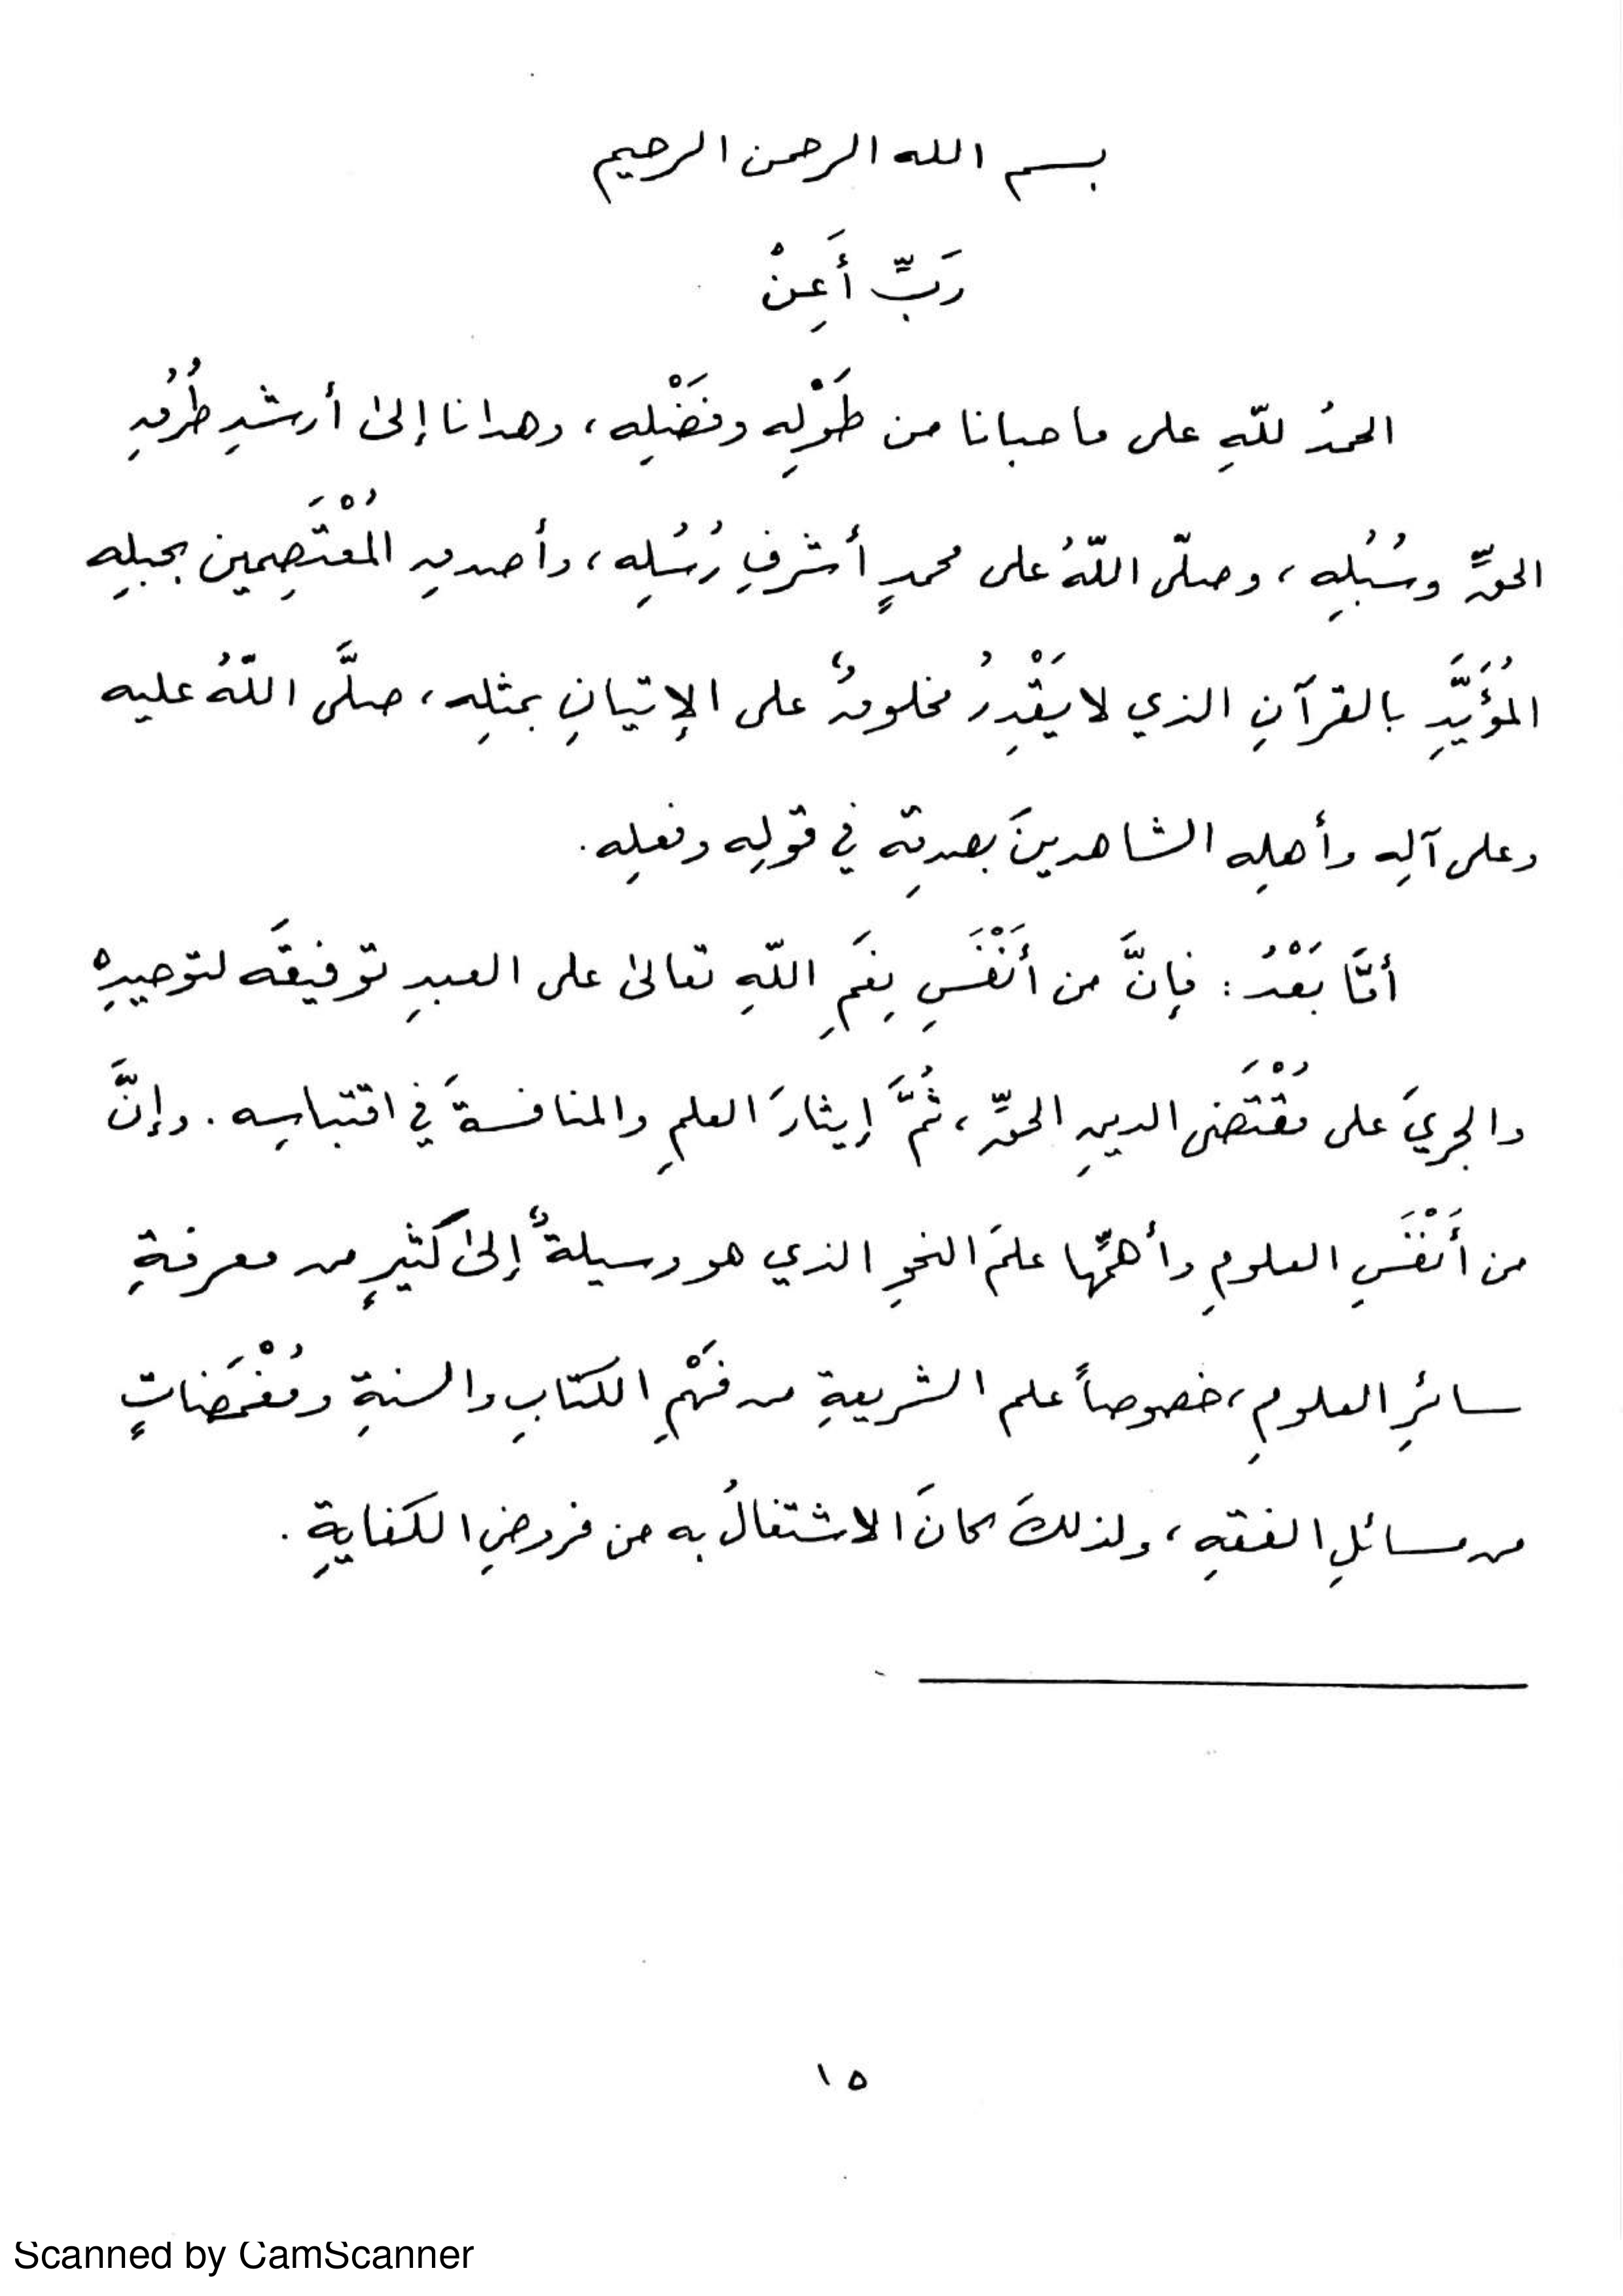 بسم الله الرحمن الرحيم
رَبِّ أَعِنْ
الحمدُ للّهِ على ما حبانا من طَوْلِه وفضَْلِه، وهدانا إلىٰ أرشدِ طُرُقِ
الحقِّ وسُبُلِه، وصلّى اللّهُ على محمدٍ أشرفِ رُسُلِه، وأصدقِ المُعْتَصِمين بحبلِه
المُؤَيَّدِ بالقرآنِ الذي لا يَقْدِرُ مخلوقٌ على الإتيانِ بمثلِه، صلَّى اللّهُ عليه
وعلى آلِه وأهلِه الشاهدينَ بصدقِه في قولِه وفعلِه.
أمَّا بَعْدُ: فإنَّ من أَنْفَسِ نِعَمِ اللّهِ تعالىٰ على العبدِ توفيقَه لتوحيدِه
والجريَ على مُقْتَضى الدينِ الحقِّ، ثُمَّ إيثارَ العلمِ والمنافسةَ في اقتباسِه. وإنَّ
من أَنْفَسِ العلومِ وأهمِّها علمَ النحوِ الذي هو وسيلةٌ إلىٰ كثيرٍ من معرفةِ
سائرِ العلومِ، خصوصاً علم الشريعةِ من فَهْمِ الكتابِ والسنةِ ومُغْمَضاتٍ
من مسائلِ الفقهِ، ولذلكَ كانَ الاشتغالُ به من فروضِ الكفايةِ.
١٥
Scanned by CamScanner